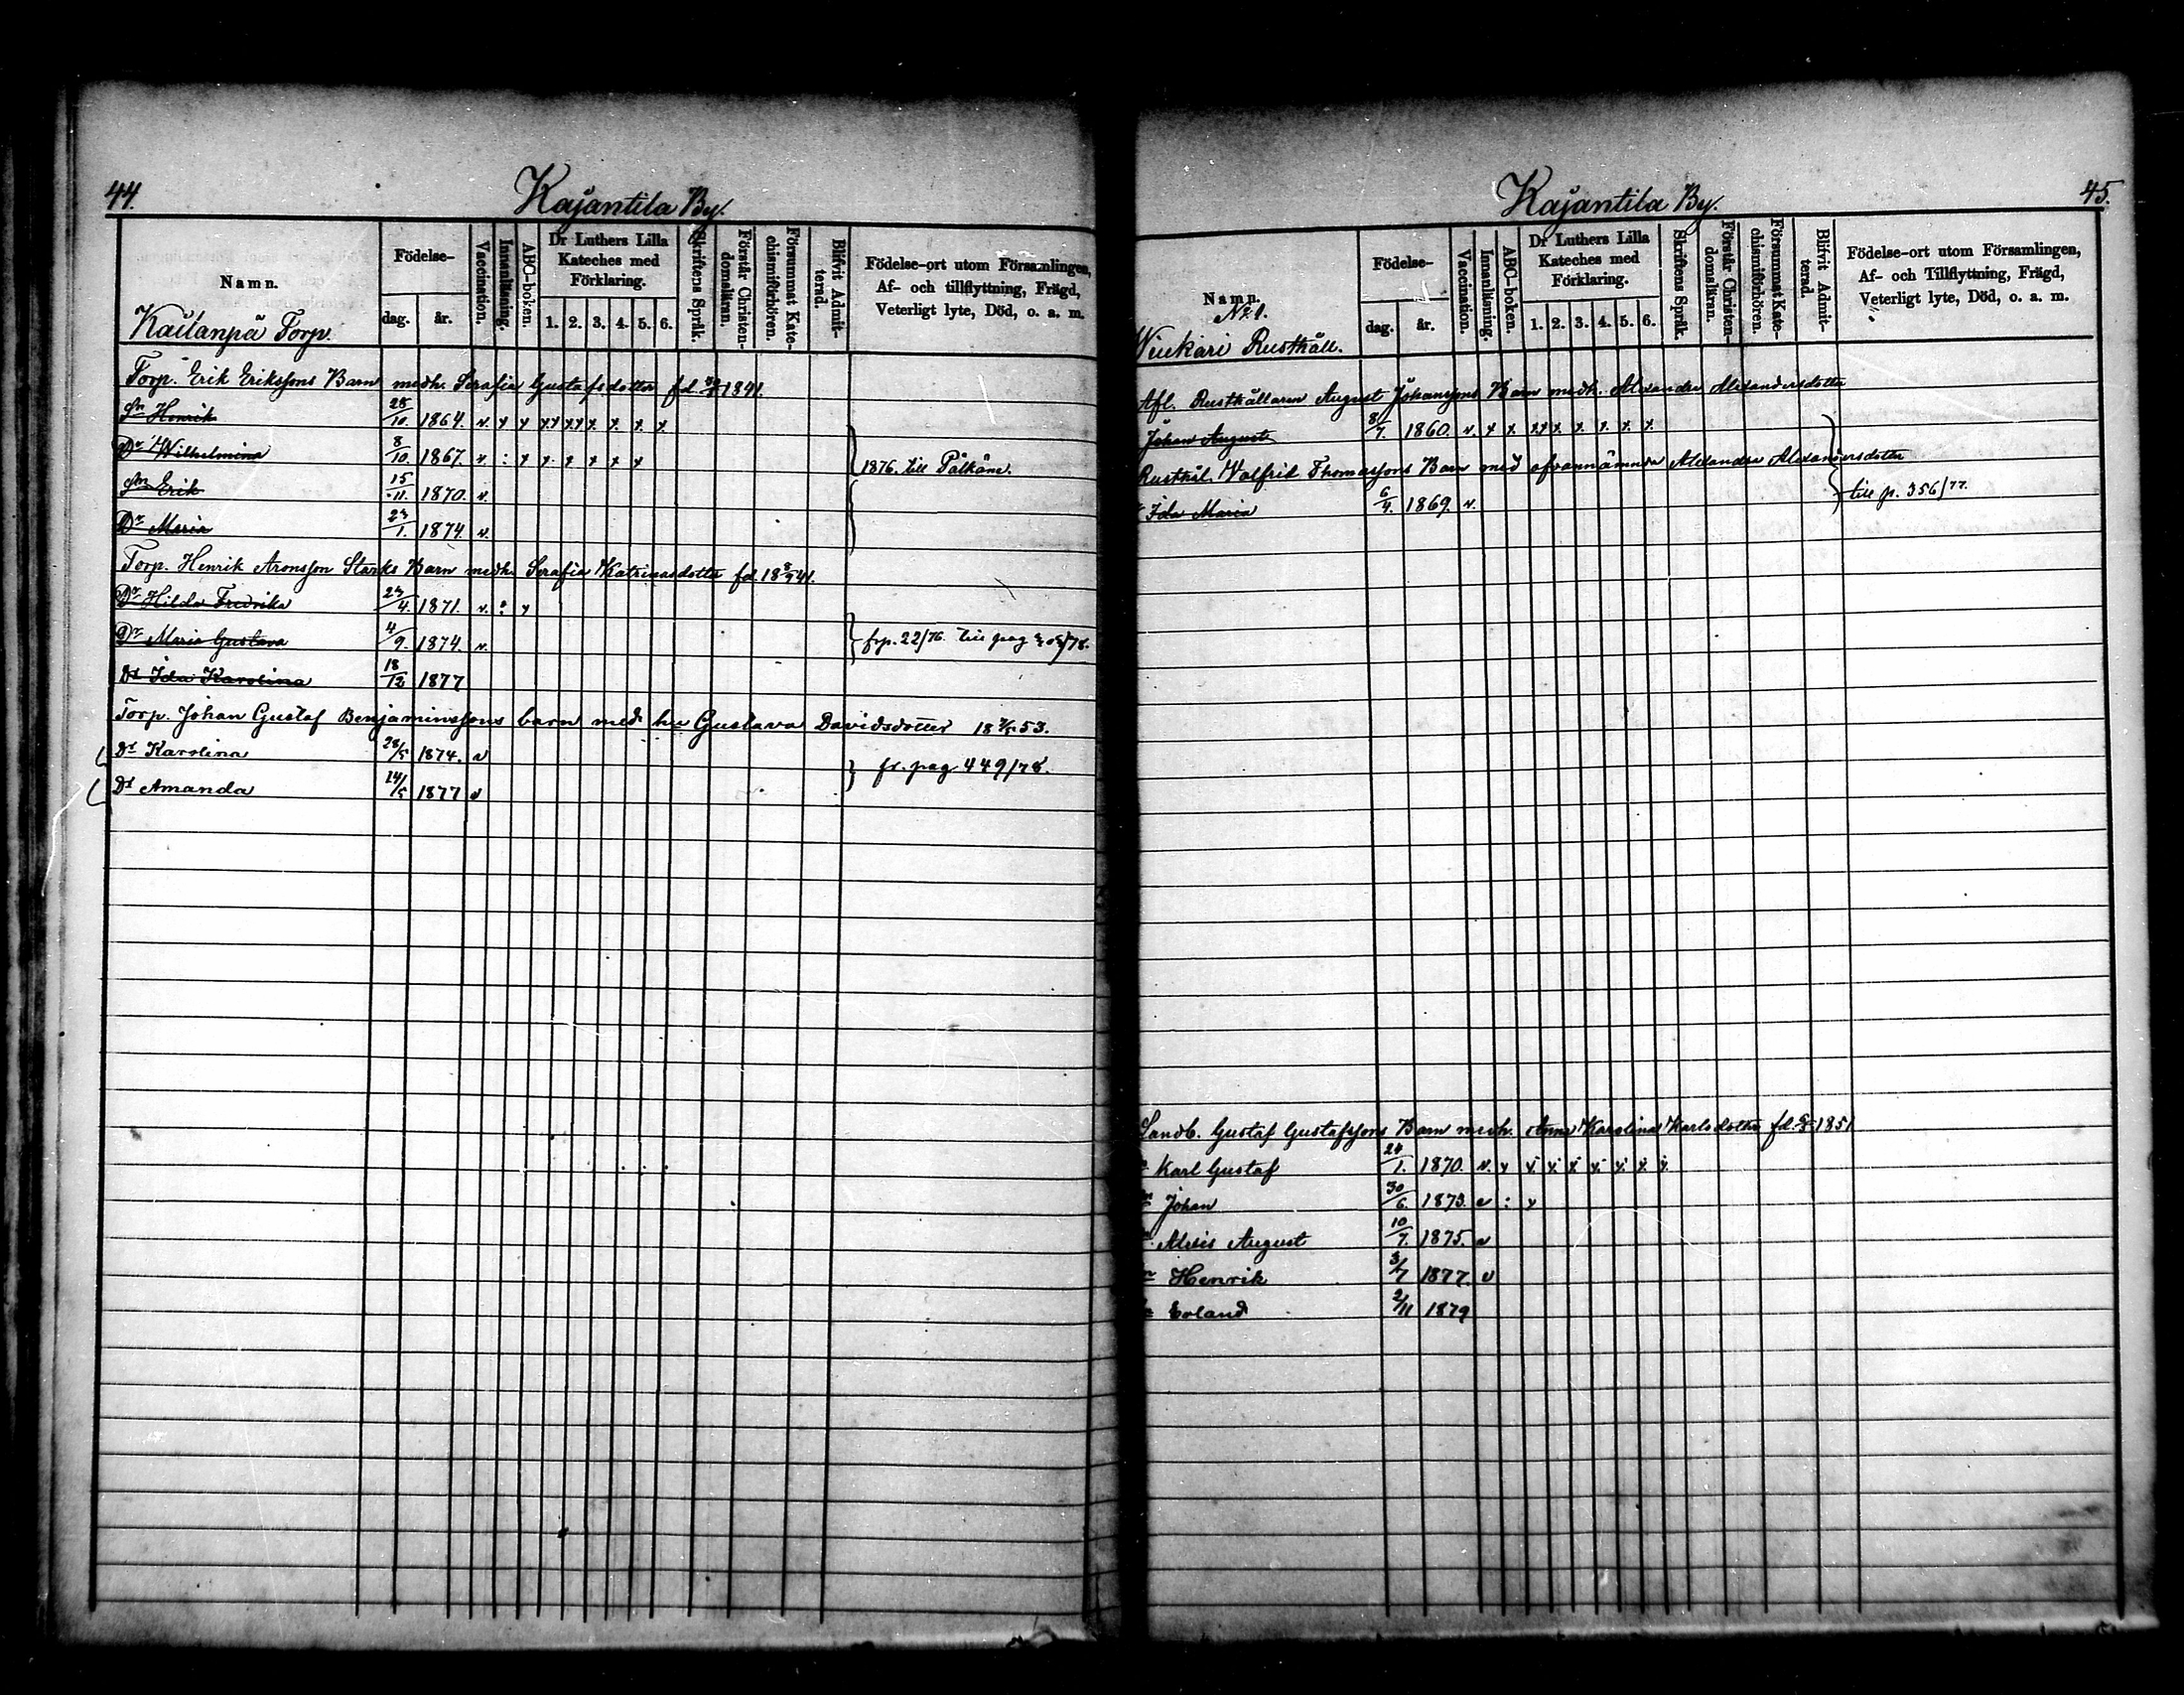 44.
Kajantila By.
Namn.
Födelse-
dag. år.
Vaccination.
Innanläsning.
ABC-boken.
Dr Luthers Lilla Kateches med Förklaring.
1. 2. 3. 4. 5. 6.
Skriftens Språk.
Förstår Christendomsläran.
Försummat Katechismiförhören.
Blifvit Admitterad.
Födelse-ort utom Församlingen,
Af- och tillflyttning, Frägd,
Veterligt lyte, Död, o. a. m.
Torp.
Torp. Erik Erikssons Barn medh. Serafia Gustafsdotter fd. 1841.
Sn Henrik 28/10. 1864. v. x x xx xx x. x. x. x.
Dr Wilhelmina 8/10. 1867. v. : x x. x x x x
1876. till Pälkäne.
Sn Erik 15/11. 1870. v.
Dr Maria 23/1. 1874. v.
Torp. Henrik Aronsson Starks Barn medh. Serafia Katrinasdotter fd. 18 8/9 41.
Dr Hilda Fredrika 23/4. 1871. v. : x
Dr Maria Gustava 4/9. 1874. v.
frp. 22/76. till pag /78.
Dr Ida Karolina 18/12 1877
Torp. Johan Gustaf Benjaminssons barn med hu Gustava Davidsdotter 18 53.
Dr Karolina 28/5 1874. v
fr. pag 449/78.
Dr Amanda 14/5 1877 v
45.
Kajantila By.
Namn.
No 1.
Rusthåll.
Födelse-
dag. år.
Vaccination.
Innanläsning.
ABC-boken.
Dr Luthers Lilla Kateches med Förklaring.
1. 2. 3. 4. 5. 6.
Skriftens Språk.
Förstår Christendomsläran.
Försummat Katechismiförhören.
Blifvit Admitterad.
Födelse-ort utom Församlingen,
Af- och Tillflyttning, Frägd,
Veterligt lyte, Död, o. a. m.
Afl. Rusthållaren August Johanssons Barn medh. Alexandra Alexandersdotter
Johan August 8/7. 1860. v. x x. xx x. x. x. x. x.
Rusthål. Valfrid Thomassons Barn med ofvannämnda Alexandra Alexandersdotter
till p. 356/77.
Ida Maria 6/4. 1869. v.
Landb. Gustaf Gustafssons Barn medh. Anna Karolina Karlsdotter fd. 1851
Karl Gustaf 24/1. 1870. v. x x x x x x x x
Johan 30/6. 1873. v : x
Alexis August 10/7. 1875. v
Henrik 3/7 1877. v
Erland 2/11 1879